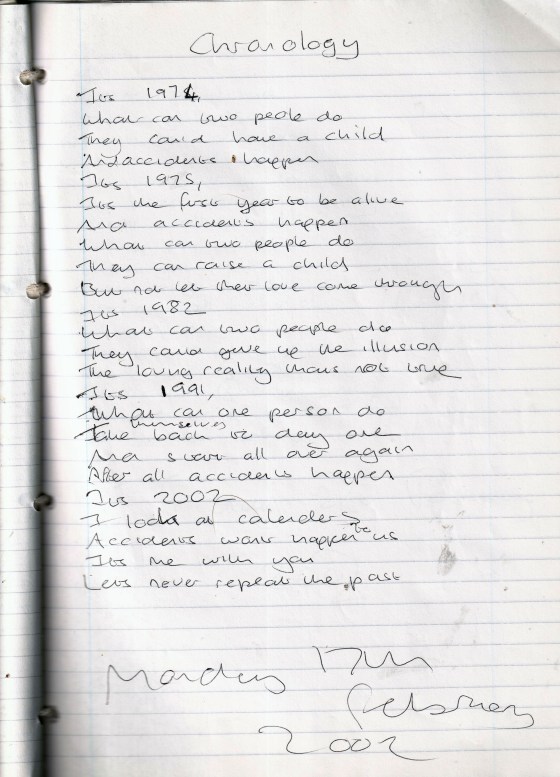 Chronology
Its 1974,
What can two people do
They could have a child
And accidents happen
Its 1975,
Its the first year to be alive
And accidents happen
What can two people do
They can raise a child
But not let their love come through
Its 1982
What can two people do
They could give up the illusion
The loving reality thats not true
Its 1991,
What can one person do
Take themselves back to day one
And start all over again
After all accidents happen
Its 2002
I look at calenders
Accidents wont happen to us
Its me with you
Lets never repeat the past
Monday 17th
February
2002